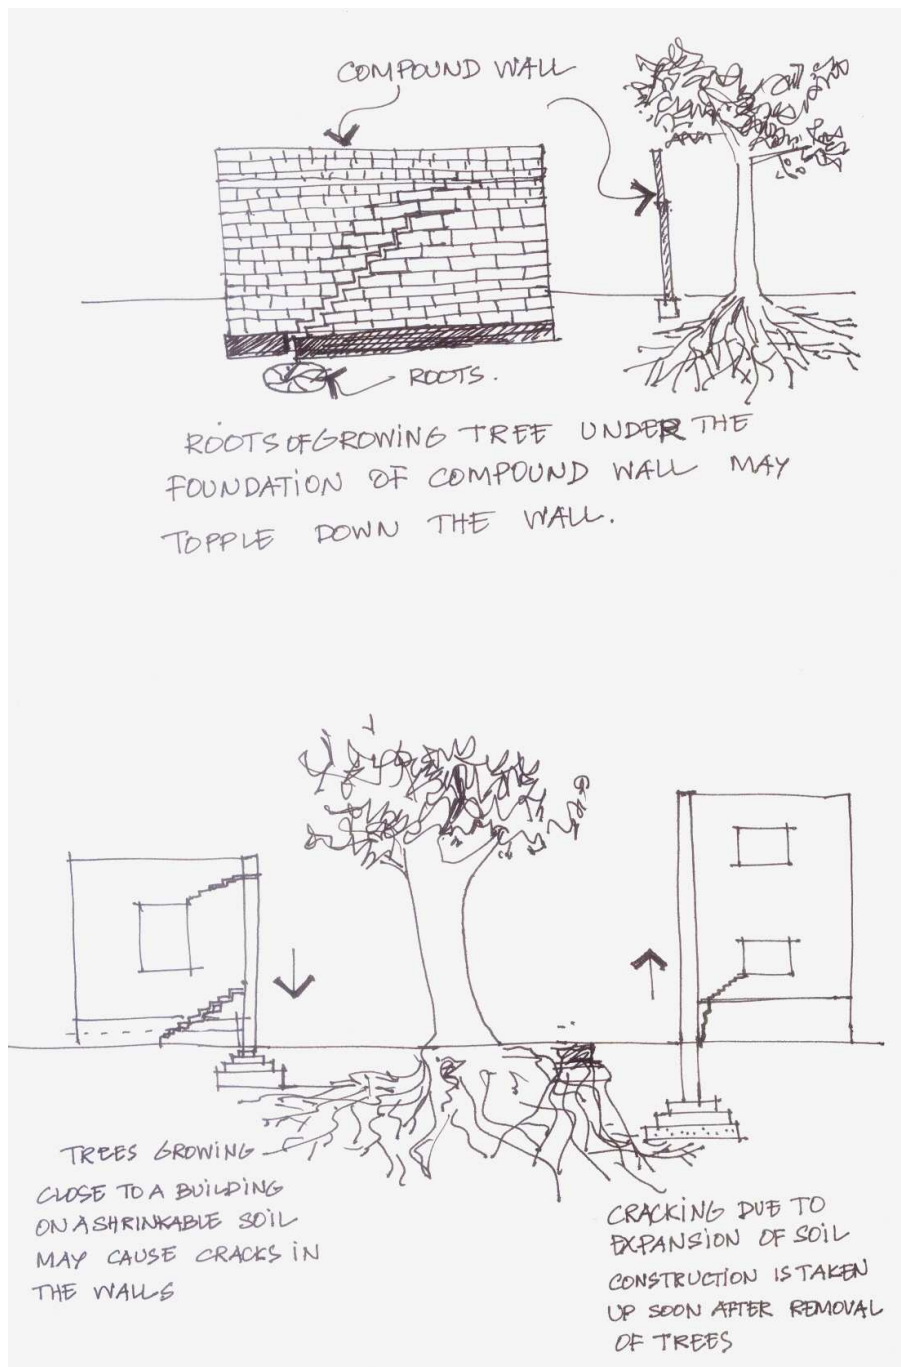 COMPOUND WALL
ROOTS.
ROOTS OF GROWING TREE UNDER THE
FOUNDATION OF COMPOUND WALL MAY
TOPPLE DOWN THE WALL.
TREES GROWING
CLOSE TO A BUILDING
ON A SHRINKABLE SOIL
MAY CAUSE CRACKS IN
THE WALLS
CRACKING DUE TO
EXPANSION OF SOIL
CONSTRUCTION IS TAKEN
UP SOON AFTER REMOVAL
OF TREES